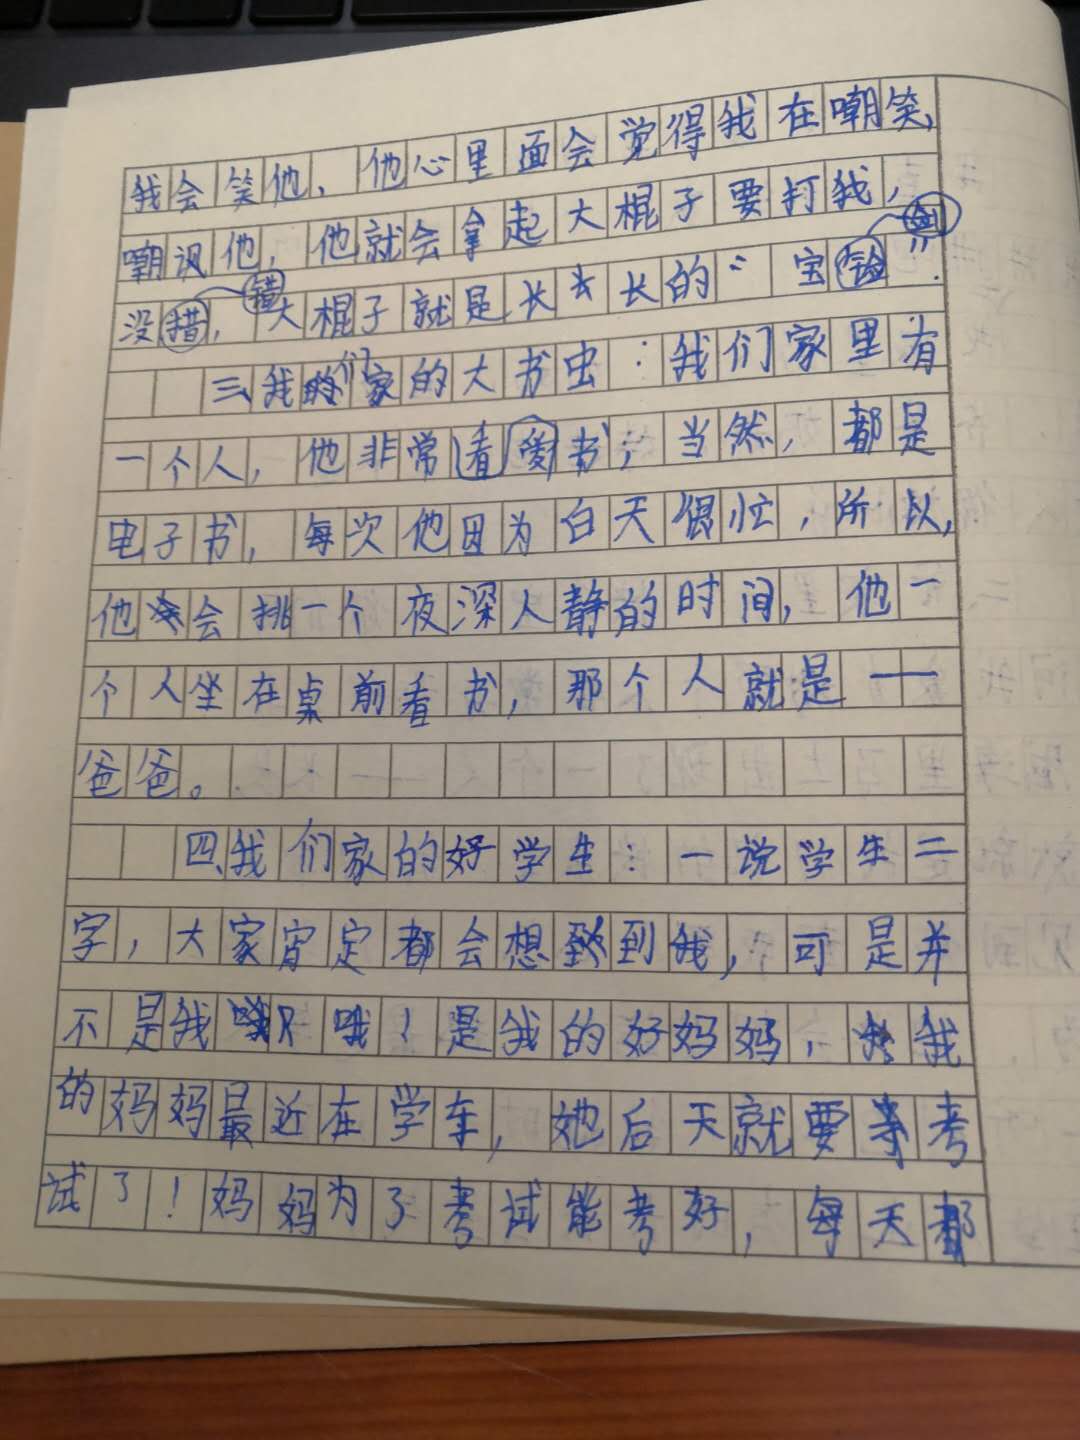 我会笑他，他心里面会觉得我在嘲笑、
嘲讽他，他就会拿起大棍子要打我，
没错，大棍子就是长长长的“宝剑”.
三、我们家的大书虫：我们家里有
一个人，他非常爱看书，当然，都是
电子书，每次他因为白天很忙，所以，
他会挑一个夜深人静的时间，他一
个人坐在桌前看书，那个人就是——
爸爸。
四、我们家的好学生：一说学生二
字，大家肯定都会想到我，可是并
不是我哦！是我的好妈妈，我
的妈妈最近在学车，她后天就要考
试了！妈妈为了考试能考好，每天都